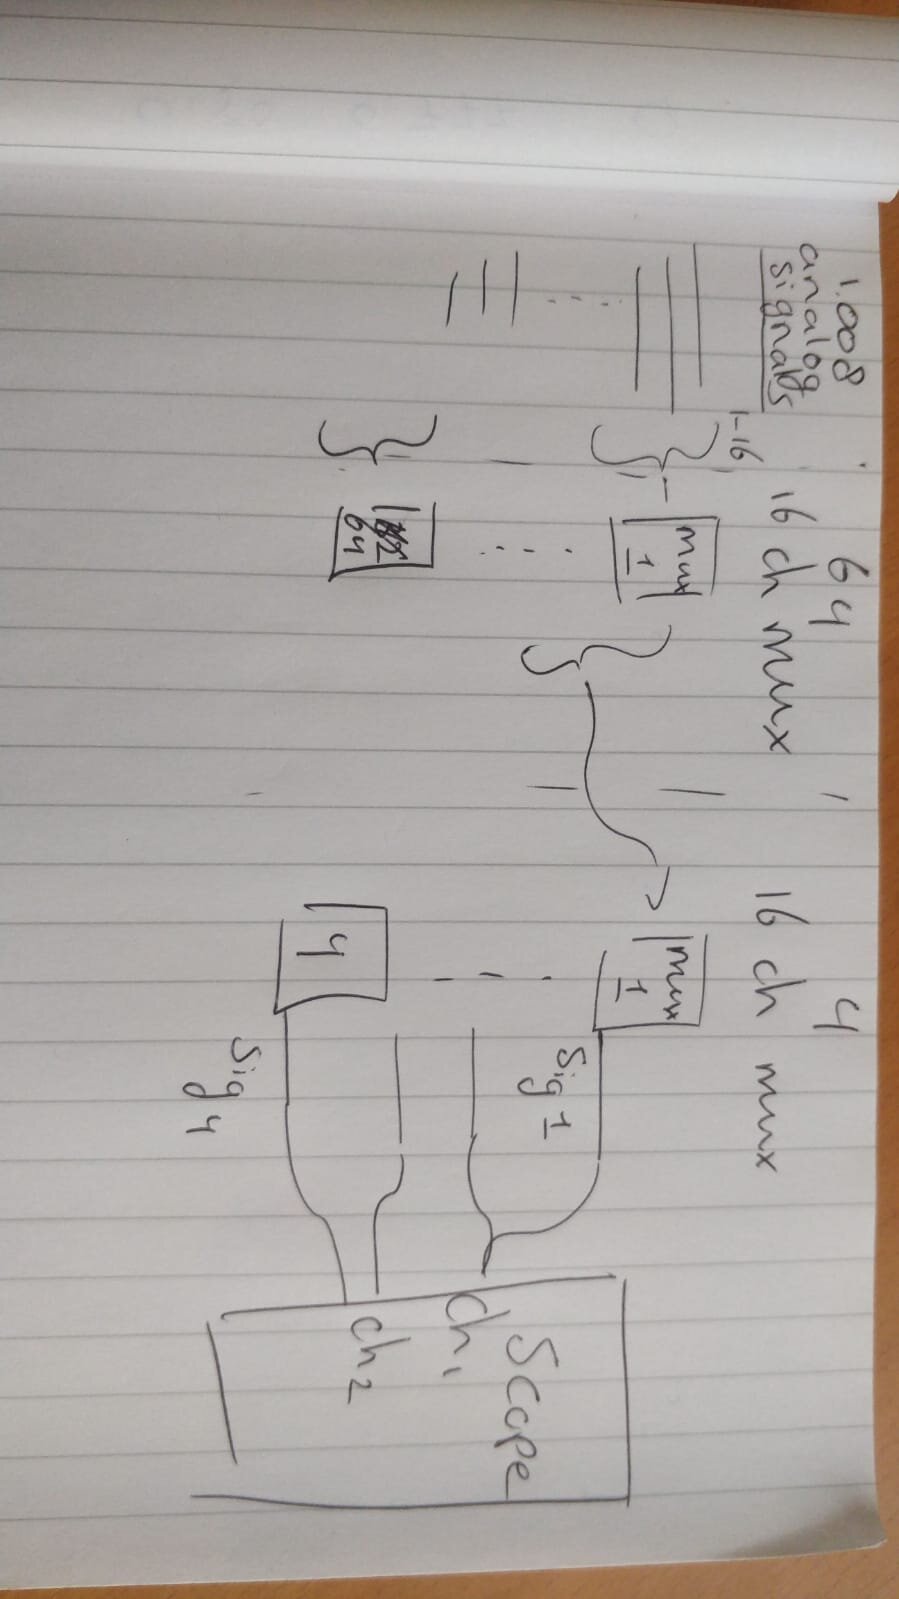 1.008
analog
signals
64
16 ch mux
4
16 ch mux
1-16
mux
1
64
mux
1
4
Sig 1
Sig 4
Scope
Ch1
Ch2